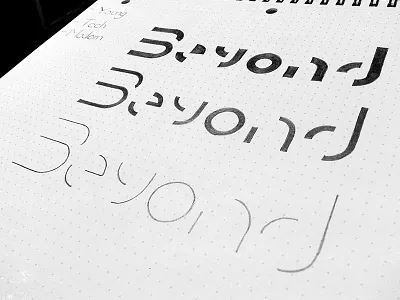 Young
Tech
Modern
Beyond
Beyond
Beyond